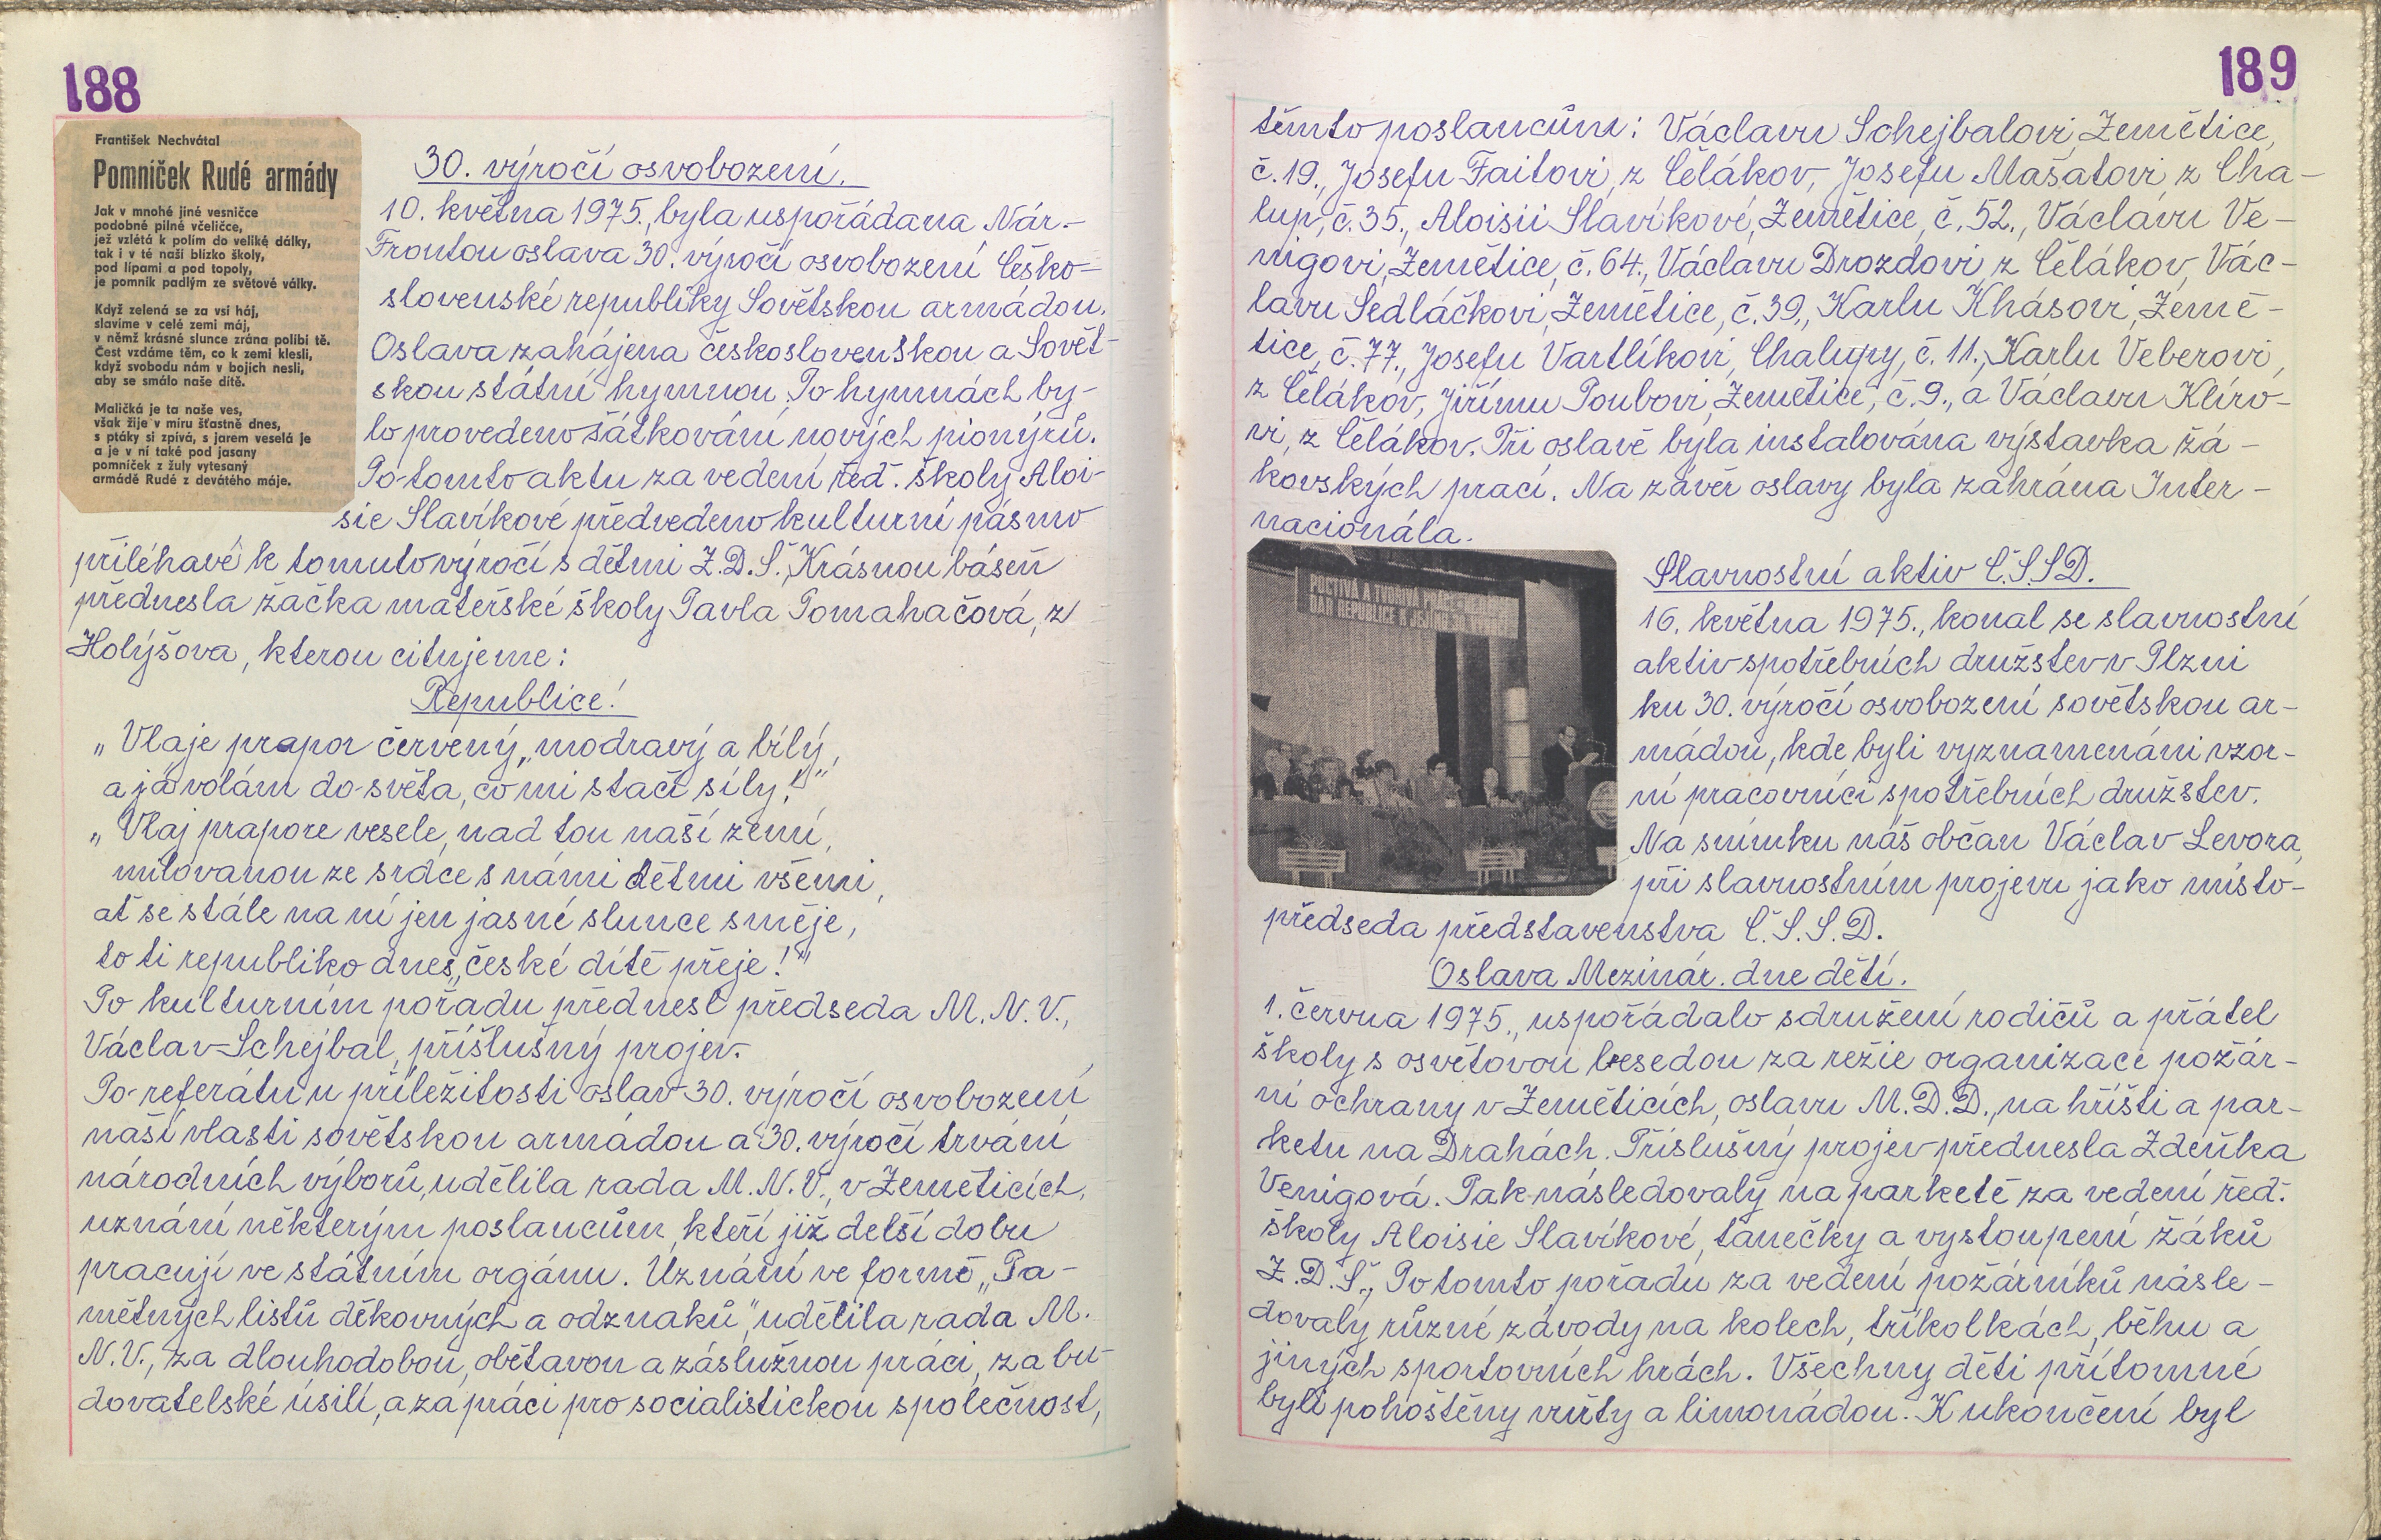 188
František Nechvátal
Pomníček Rudé armády
Jak v mnohé jiné vesničce
podobné pilné včeličce,
jež vzlétá k polím do veliké dálky,
tak i v té naší blízko školy,
pod lípami a pod topoly,
je pomník padlým ze světové války.
Když zelená se za vsí háj,
slavíme v celé zemi máj,
v němž krásné slunce zrána políbí tě.
Čest vzdáme těm, co k zemi klesli,
když svobodu nám v bojích nesli,
aby se smálo naše dítě.
Maličká je ta naše ves,
však žije v míru šťastně dnes,
s ptáky si zpívá, s jarem veselá je
a je v ní také pod jasany
pomníček z žuly vytesaný
armádě Rudé z devátého máje.
30. výročí osvobození.
10. května 1975., byla uspořádana Nár.-
Frontou oslava 30. výročí osvobození Česko-
slovenské republiky Sovětskou armádou.
Oslava zahájena československou a Sovět-
skou státní hymnou. Po hymnách by-
lo provedeno šátkování nových pionýrů.
Po tomto aktu za vedení řed. školy Aloi-
sie Slavíkové předvedeno kulturní pásmo
přiléhavé k tomuto výročí s dětmi Z.D.Š. Krásnou báseň
přednesla žačka mateřské školy Pavla Pomahačová, z
Holýšova, kterou citujeme:
Republice!
„Vlaje prapor červený„ modravý a bílý,
a já volám do světa, co mi stačí síly!"
„Vlaj prapore vesele, nad tou naší zemí,
milovanou ze srdce s námi dětmi všemi,
ať se stále na ní jen jasné slunce směje,
to ti republiko dnes„ české dítě přeje!"
Po kulturním pořadu přednesl předseda M.N.V.,
Václav Schejbal, příslušný projev.
Po referátu u příležitosti oslav 30. výročí osvobození
naší vlasti sovětskou armádou a 30. výročí trvání
národních výborů, udělila rada M.N.V., v Zeměticích,
uznání některým poslancům, kteří již delší dobu
pracují ve státním orgánu. Uznání ve formě „Pa-
mětných listů děkovných a odznaků" udělila rada M.
N.V., za dlouhodobou, obětavou a záslužnou práci, za bu-
dovatelské úsilí, a za práci pro socialistickou společnost,
189
těmto poslancům: Václavu Schejbalovi, Zemětice,
č.19., Josefu Faitovi, z Čelákov, Josefu Mašatovi z Cha-
lup, č.35., Aloisii Slavíkové, Zemětice, č.52., Václavu Ve-
nigovi, Zemětice, č.64., Václavu Drozdovi, z Čelákov, Vác-
lavu Sedláčkovi, Zemětice, č.39., Karlu Khásovi, Země-
tice, č.77., Josefu Vartlíkovi, Chalupy, č.11., Karlu Veberovi,
z Čelákov, Jiřímu Poubovi, Zemětice, č.9., a Václavu Klíro-
vi, z Čelákov. Při oslavě byla instalována výstavka žá-
kovských prací. Na závěr oslavy byla zahrána Inter-
nacionála.
POCTIVÁ A TVOŘIVÁ PRÁCE
DAR REPUBLICE K JEJÍMU 30. VÝROČÍ
Slavnostní aktiv Č.S.S.D.
16. května 1975., konal se slavnostní
aktiv spotřebních družstev v Plzni
ku 30. výročí osvobození sovětskou ar-
mádou, kde byli vyznamenáni vzor-
ní pracovníci spotřebních družstev.
Na snímku náš občan Václav Levora,
při slavnostním projevu jako místo-
předseda představenstva Č.S.S.D.
Oslava Mezinár. dne dětí.
1. června 1975., uspořádalo sdružení rodičů a přátel
školy s osvětovou besedou za režie organizace požár-
ní ochrany v Zeměticích, oslavu M.D.D., na hřišti a par-
ketu na Drahách. Příslušný projev přednesla Zdeňka
Venigová. Pak následovaly na parketě za vedení řed.
školy Aloisie Slavíkové, tanečky a vystoupení žáků
Z.D.Š., Po tomto pořadu za vedení požárníků násle-
dovaly různé závody na kolech, tříkolkách, běhu a
jiných sportovních hrách. Všechny děti přítomné
byli pohoštěny vuřty a limonádou. K ukončení byl